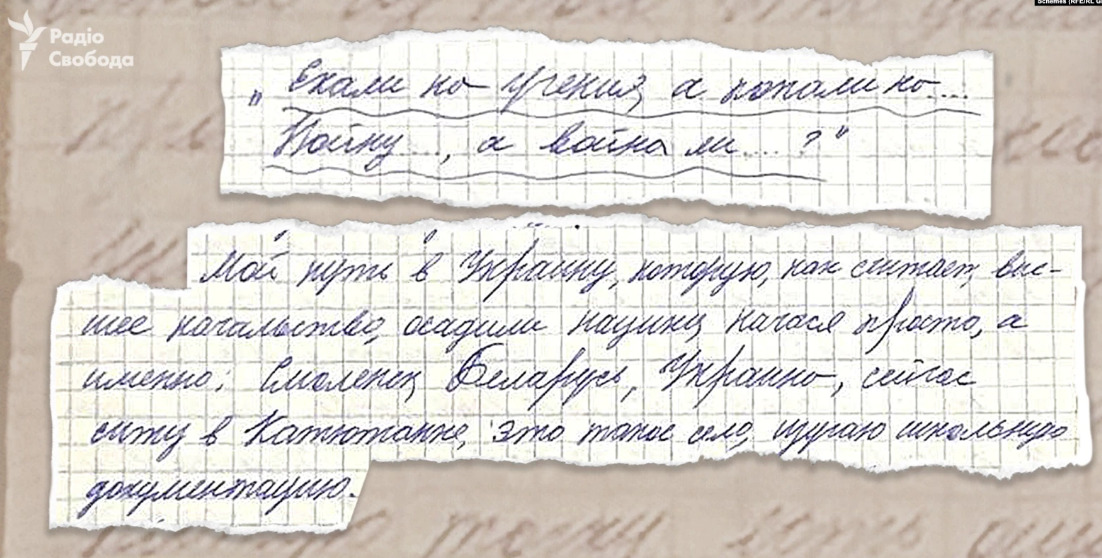 Радіо
Свобода
Schemes (RFE/RL
„Ехали на учения, а попали на...
Войну..., а война ли...?"
Мой путь в Украину, которую, как считает, выс-
шее начальство, осадили нацики, начася просто, а
именно: Смоленск, Беларусь, Украина, сейчас
сижу в Катюжанке, это такое село, изучаю школьную
документацию.